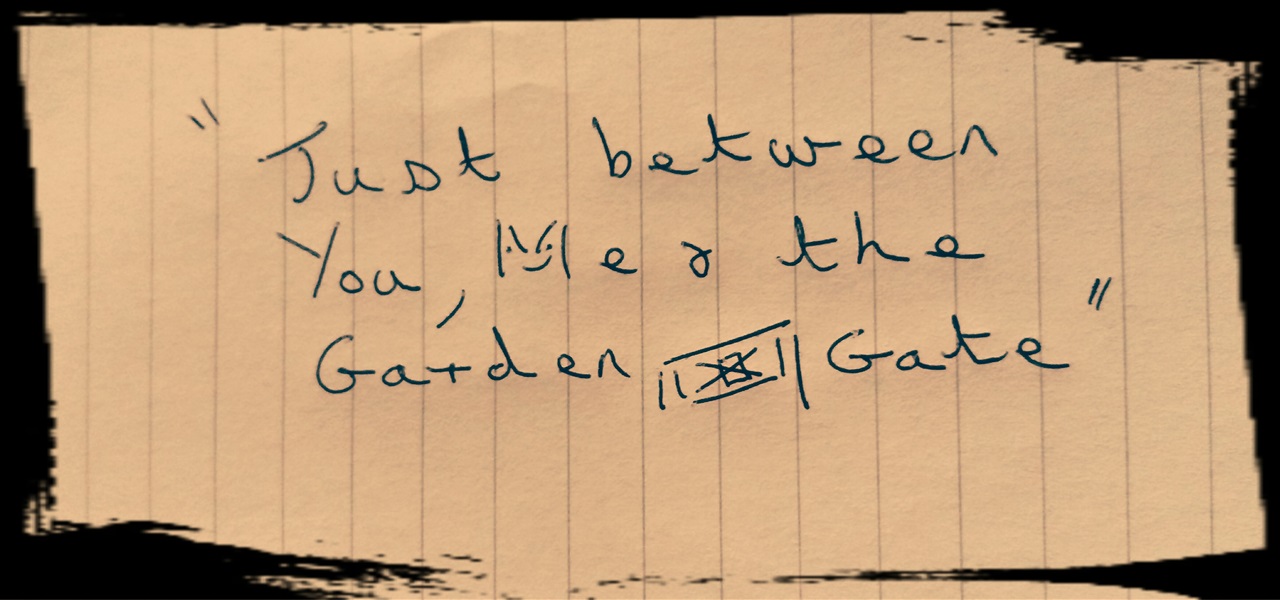 "Just between
You, Me & the
Garden Gate"